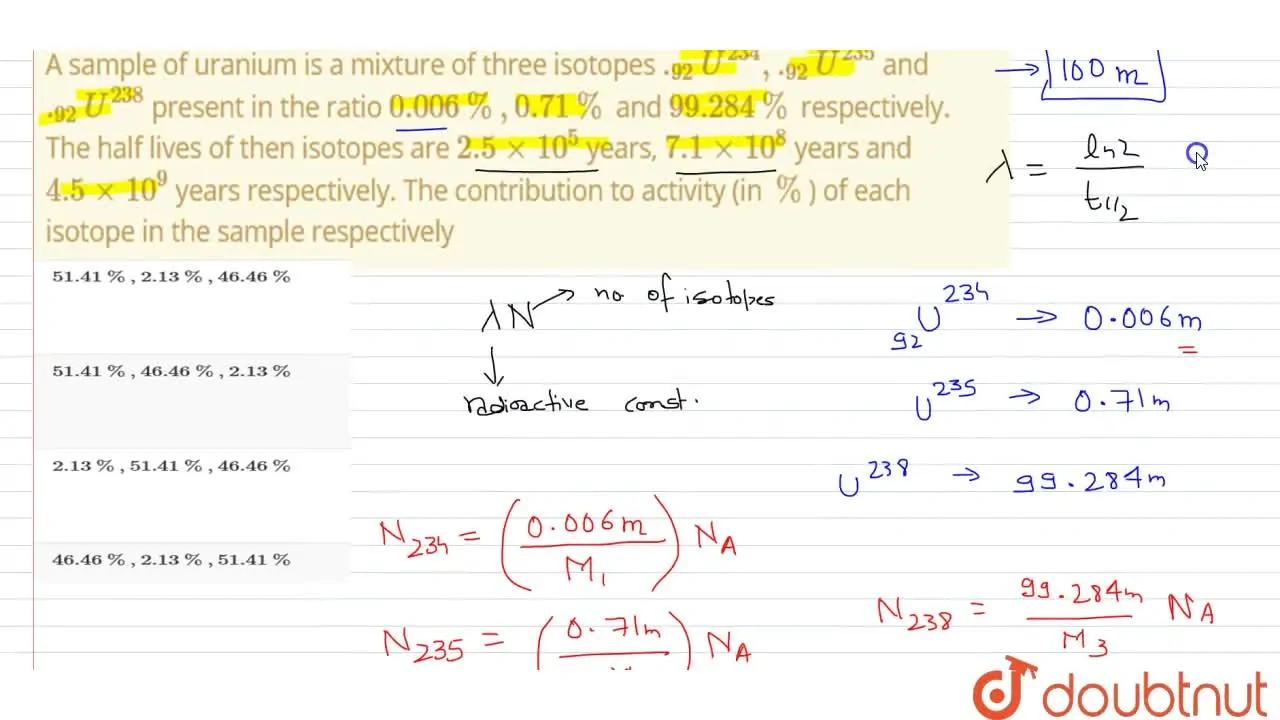 A sample of uranium is a mixture of three isotopes .₉₂U²³⁴, .₉₂U²³⁵ and
.₉₂U²³⁸ present in the ratio 0.006 %, 0.71 % and 99.284 % respectively.
The half lives of then isotopes are 2.5 × 10⁵ years, 7.1 × 10⁸ years and
4.5 × 10⁹ years respectively. The contribution to activity (in %) of each
isotope in the sample respectively
→ 100 m
λ = ln2 / t1/2
51.41 % , 2.13 % , 46.46 %
51.41 % , 46.46 % , 2.13 %
2.13 % , 51.41 % , 46.46 %
46.46 % , 2.13 % , 51.41 %
λN → no of isotopes
↓
radioactive const.
₉₂U²³⁴ → 0.006m
U²³⁵ → 0.71m
U²³⁸ → 99.284m
N₂₃₄ = (0.006m / M₁) N_A
N₂₃₅ = (0.71m / ) N_A
N₂₃₈ = 99.284m / M₃ N_A
doubtnut